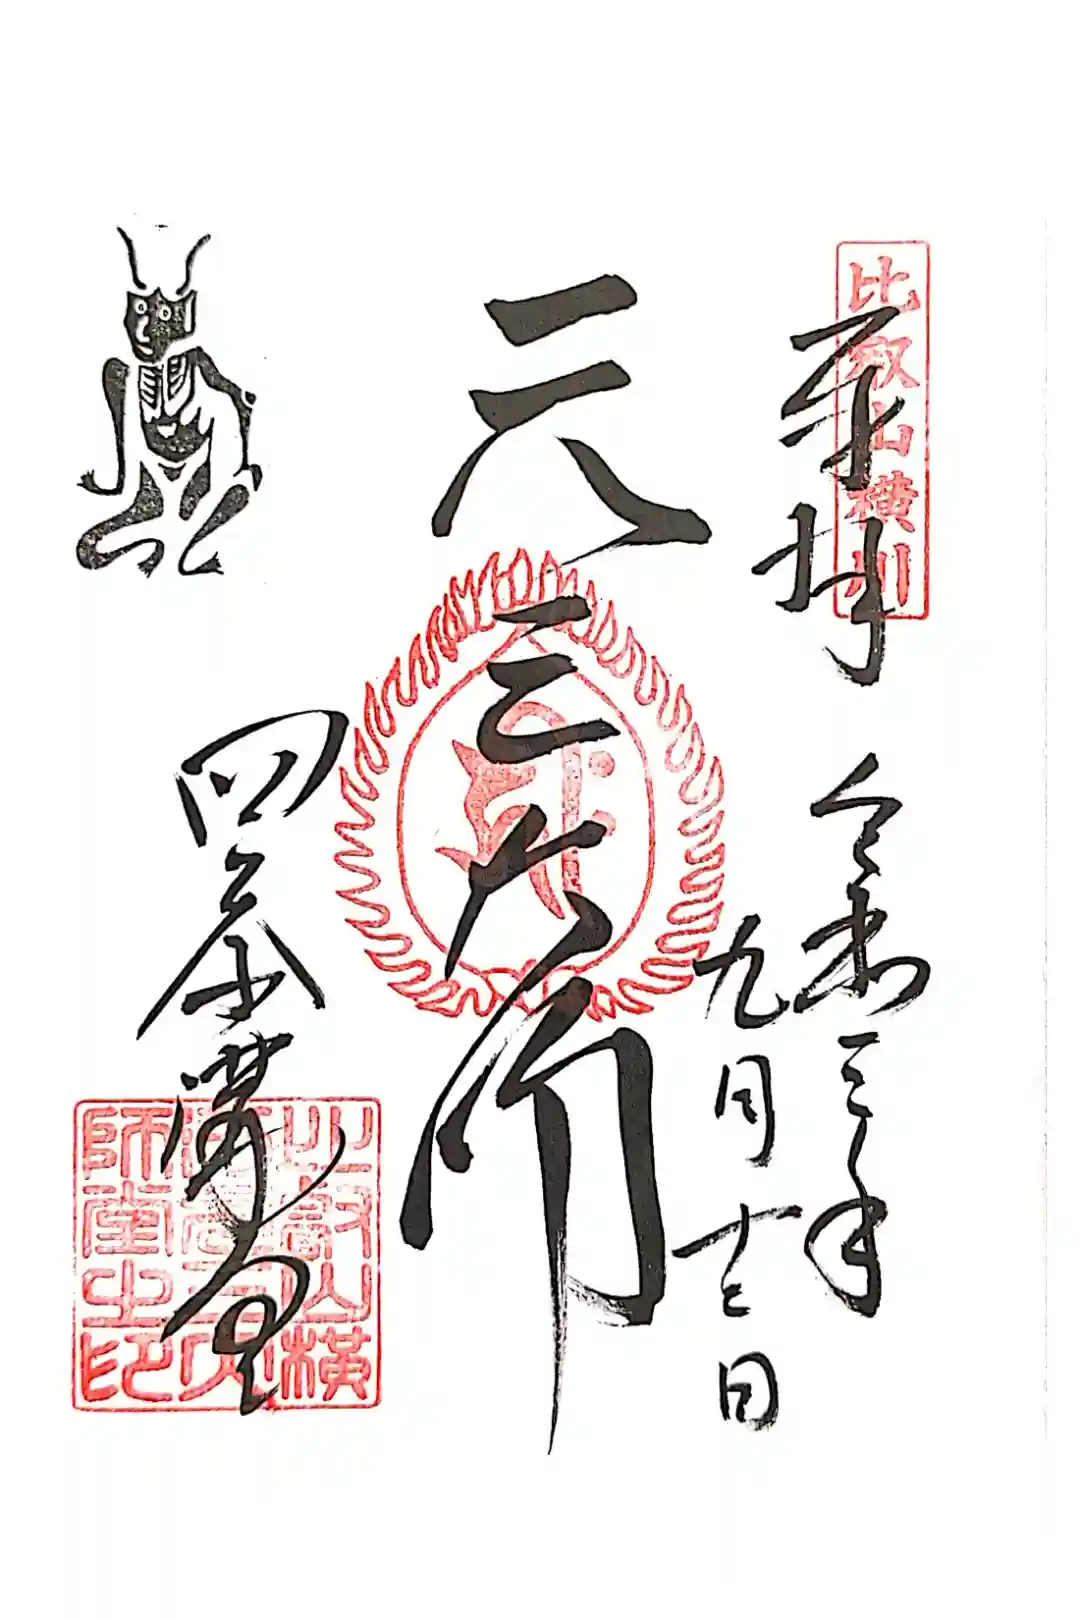 比叡山横川
奉拝
令和三年
九月十三日
元三大師
四季講堂
比叡山横
川元三大
師堂之印